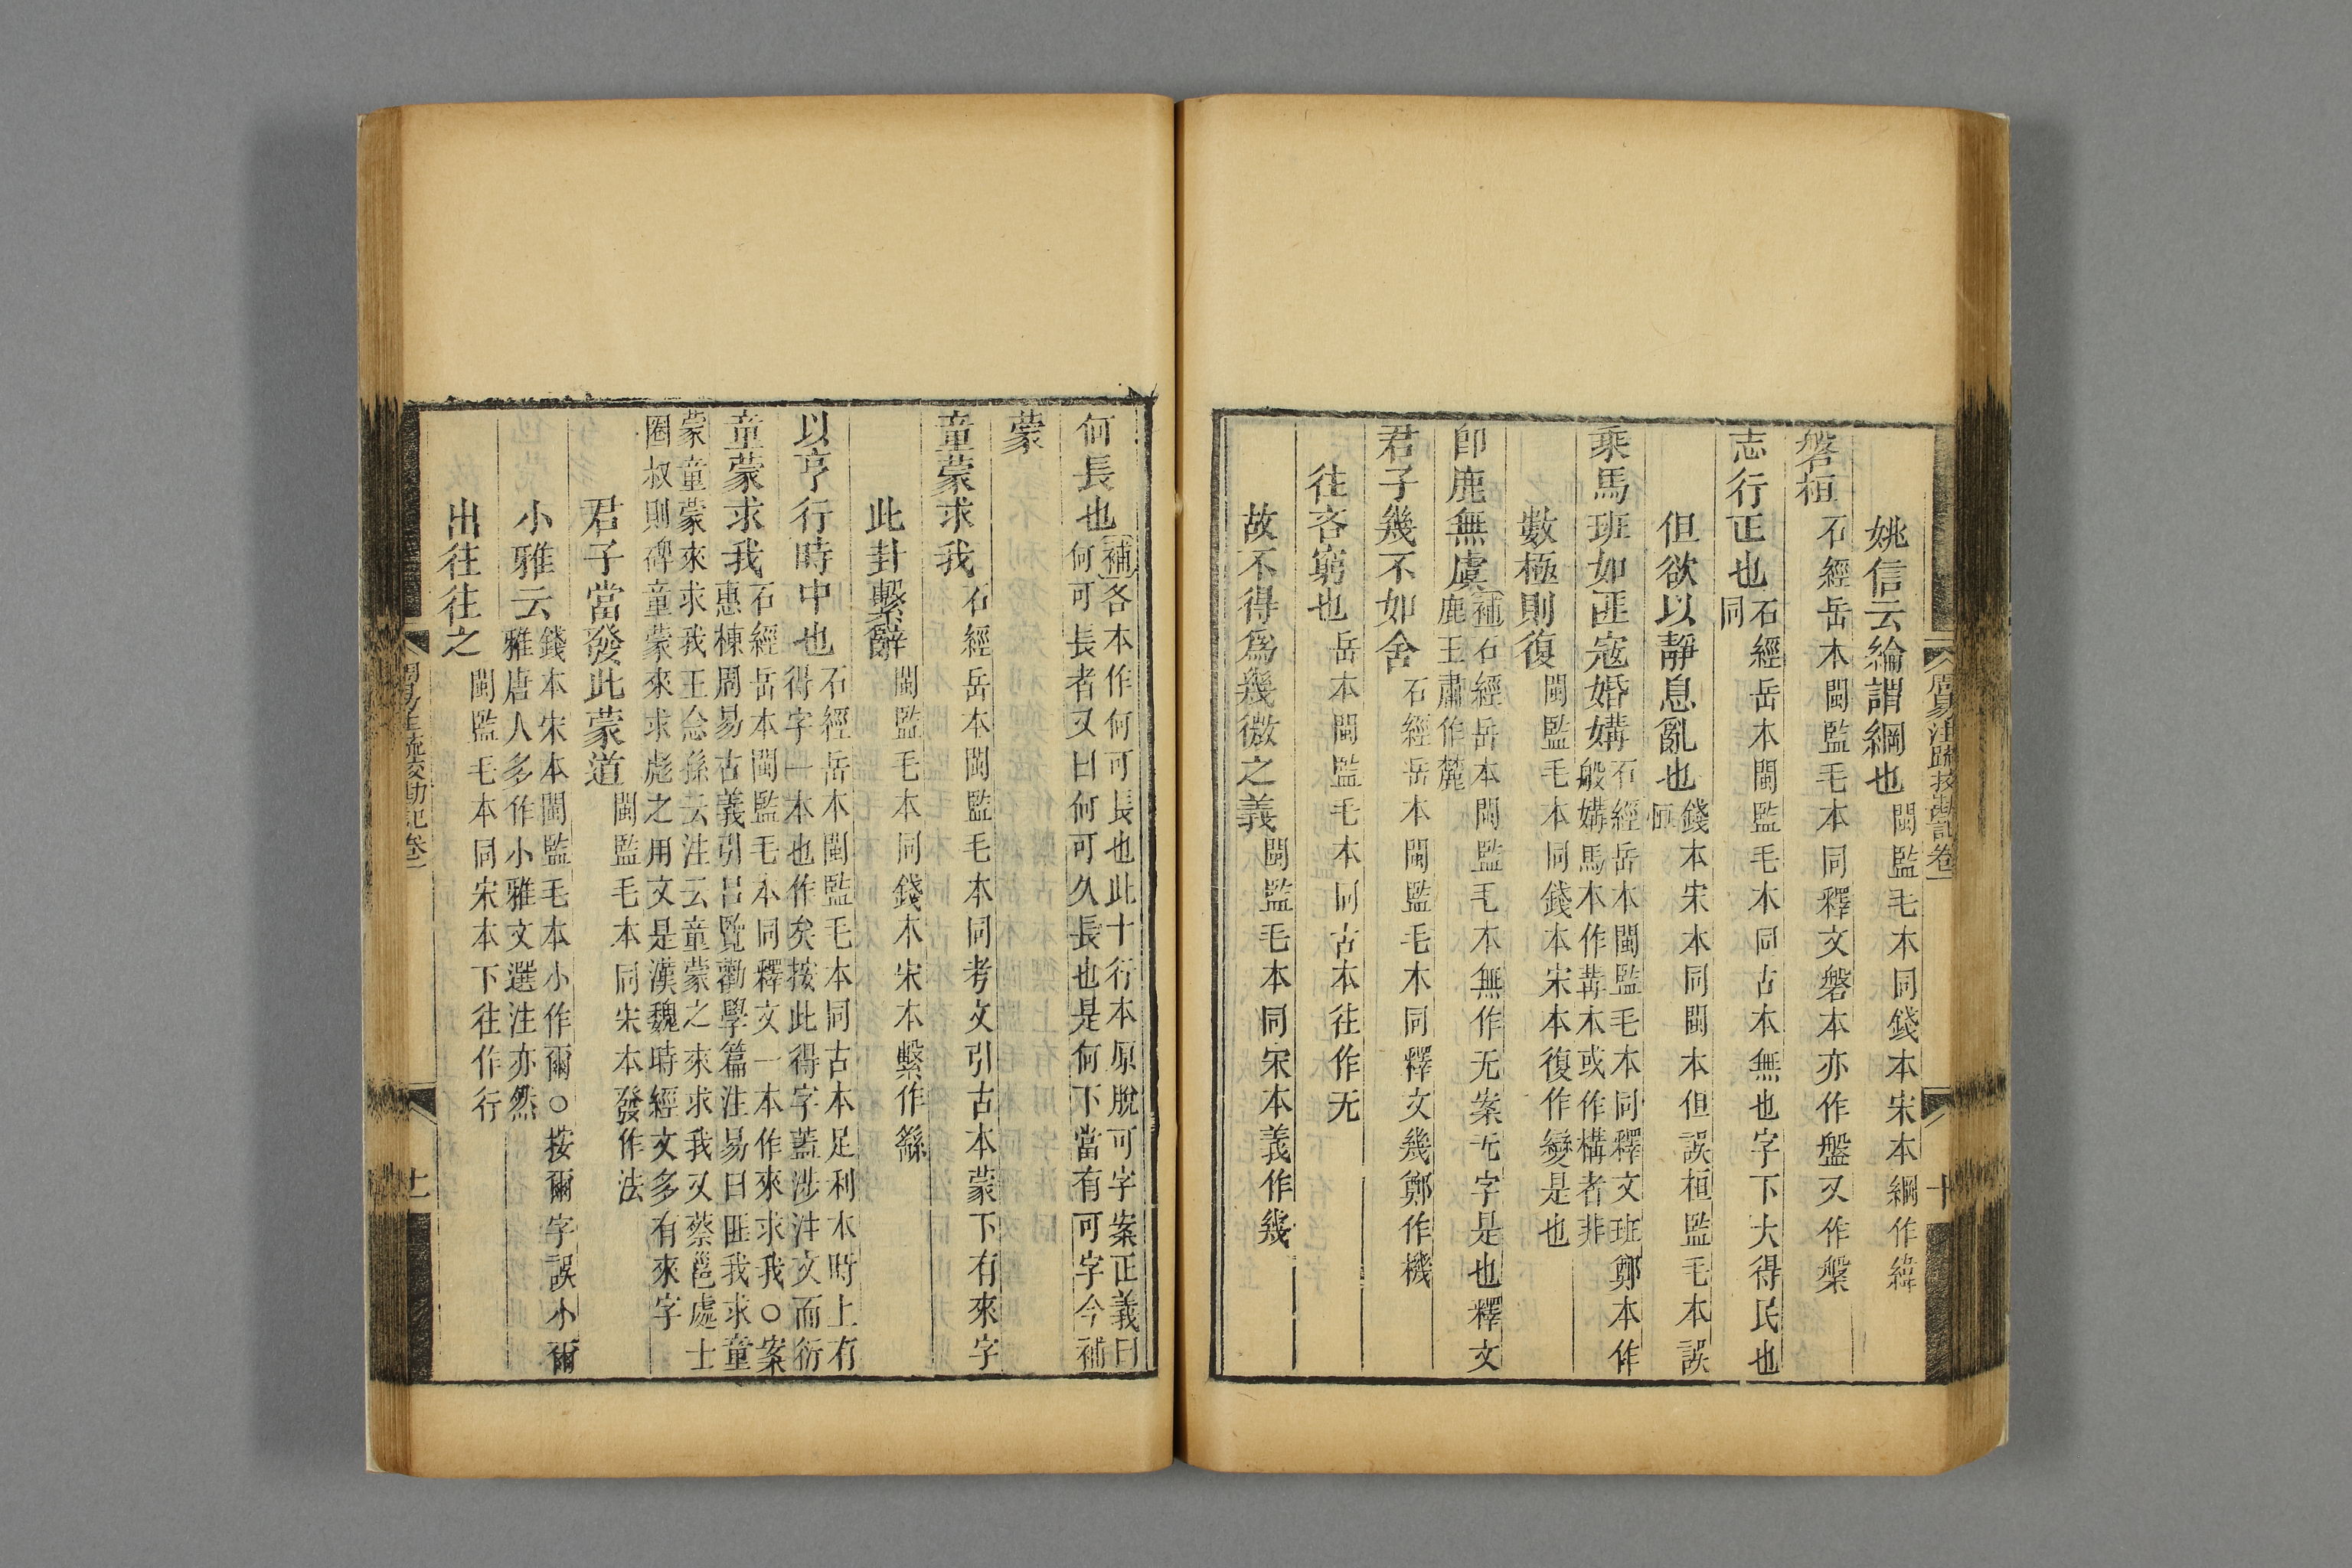 周易注疏挍勘記卷一
十
姚信云綸謂綱也閩監毛本同錢本宋本綱作緯
磐桓石經岳本閩監毛本同釋文磐本亦作盤又作槃
志行正也石經岳本閩監毛本同古本無也字下大得民也
同
但欲以靜息亂也錢本宋本同閩本但誤桓監毛本誤
恒
乘馬班如匪寇婚媾石經岳本閩監毛本同釋文班鄭本作
般媾馬本作冓本或作構者非
數極則復閩監毛本同錢本宋本復作變是也
卽鹿無虞補石經岳本閩監毛本無作无案无字是也釋文
鹿王肅作麓
君子幾不如舍石經岳本閩監毛本同釋文幾鄭作機
往吝窮也岳本閩監毛本同古本往作无
故不得爲幾微之義閩監毛本同宋本義作幾
何長也補各本作何可長也此十行本原脫可字案正義曰
何可長者又曰何可久長也是何下當有可字今補
蒙
童蒙求我石經岳本閩監毛本同考文引古本蒙下有來字
此卦繫辭閩監毛本同錢本宋本繫作繇
以亨行時中也石經岳本閩監毛本同古本足利本時上有
得字一本也作矣按此得字蓋涉注文而衍
童蒙求我石經岳本閩監毛本同釋文一本作來求我○案
惠棟周易古義引呂覽勸學篇注易曰匪我求童
蒙童蒙來求我王念孫云注云童蒙之來求我又蔡邕處士
圈叔則碑童蒙來求彪之用文是漢魏時經文多有來字
君子當發此蒙道閩監毛本同宋本發作法
小雅云錢本宋本閩監毛本小作爾○按爾字誤小爾
雅唐人多作小雅文選注亦然
出往往之閩監毛本同宋本下往作行
周易注疏挍勘記卷一
十一